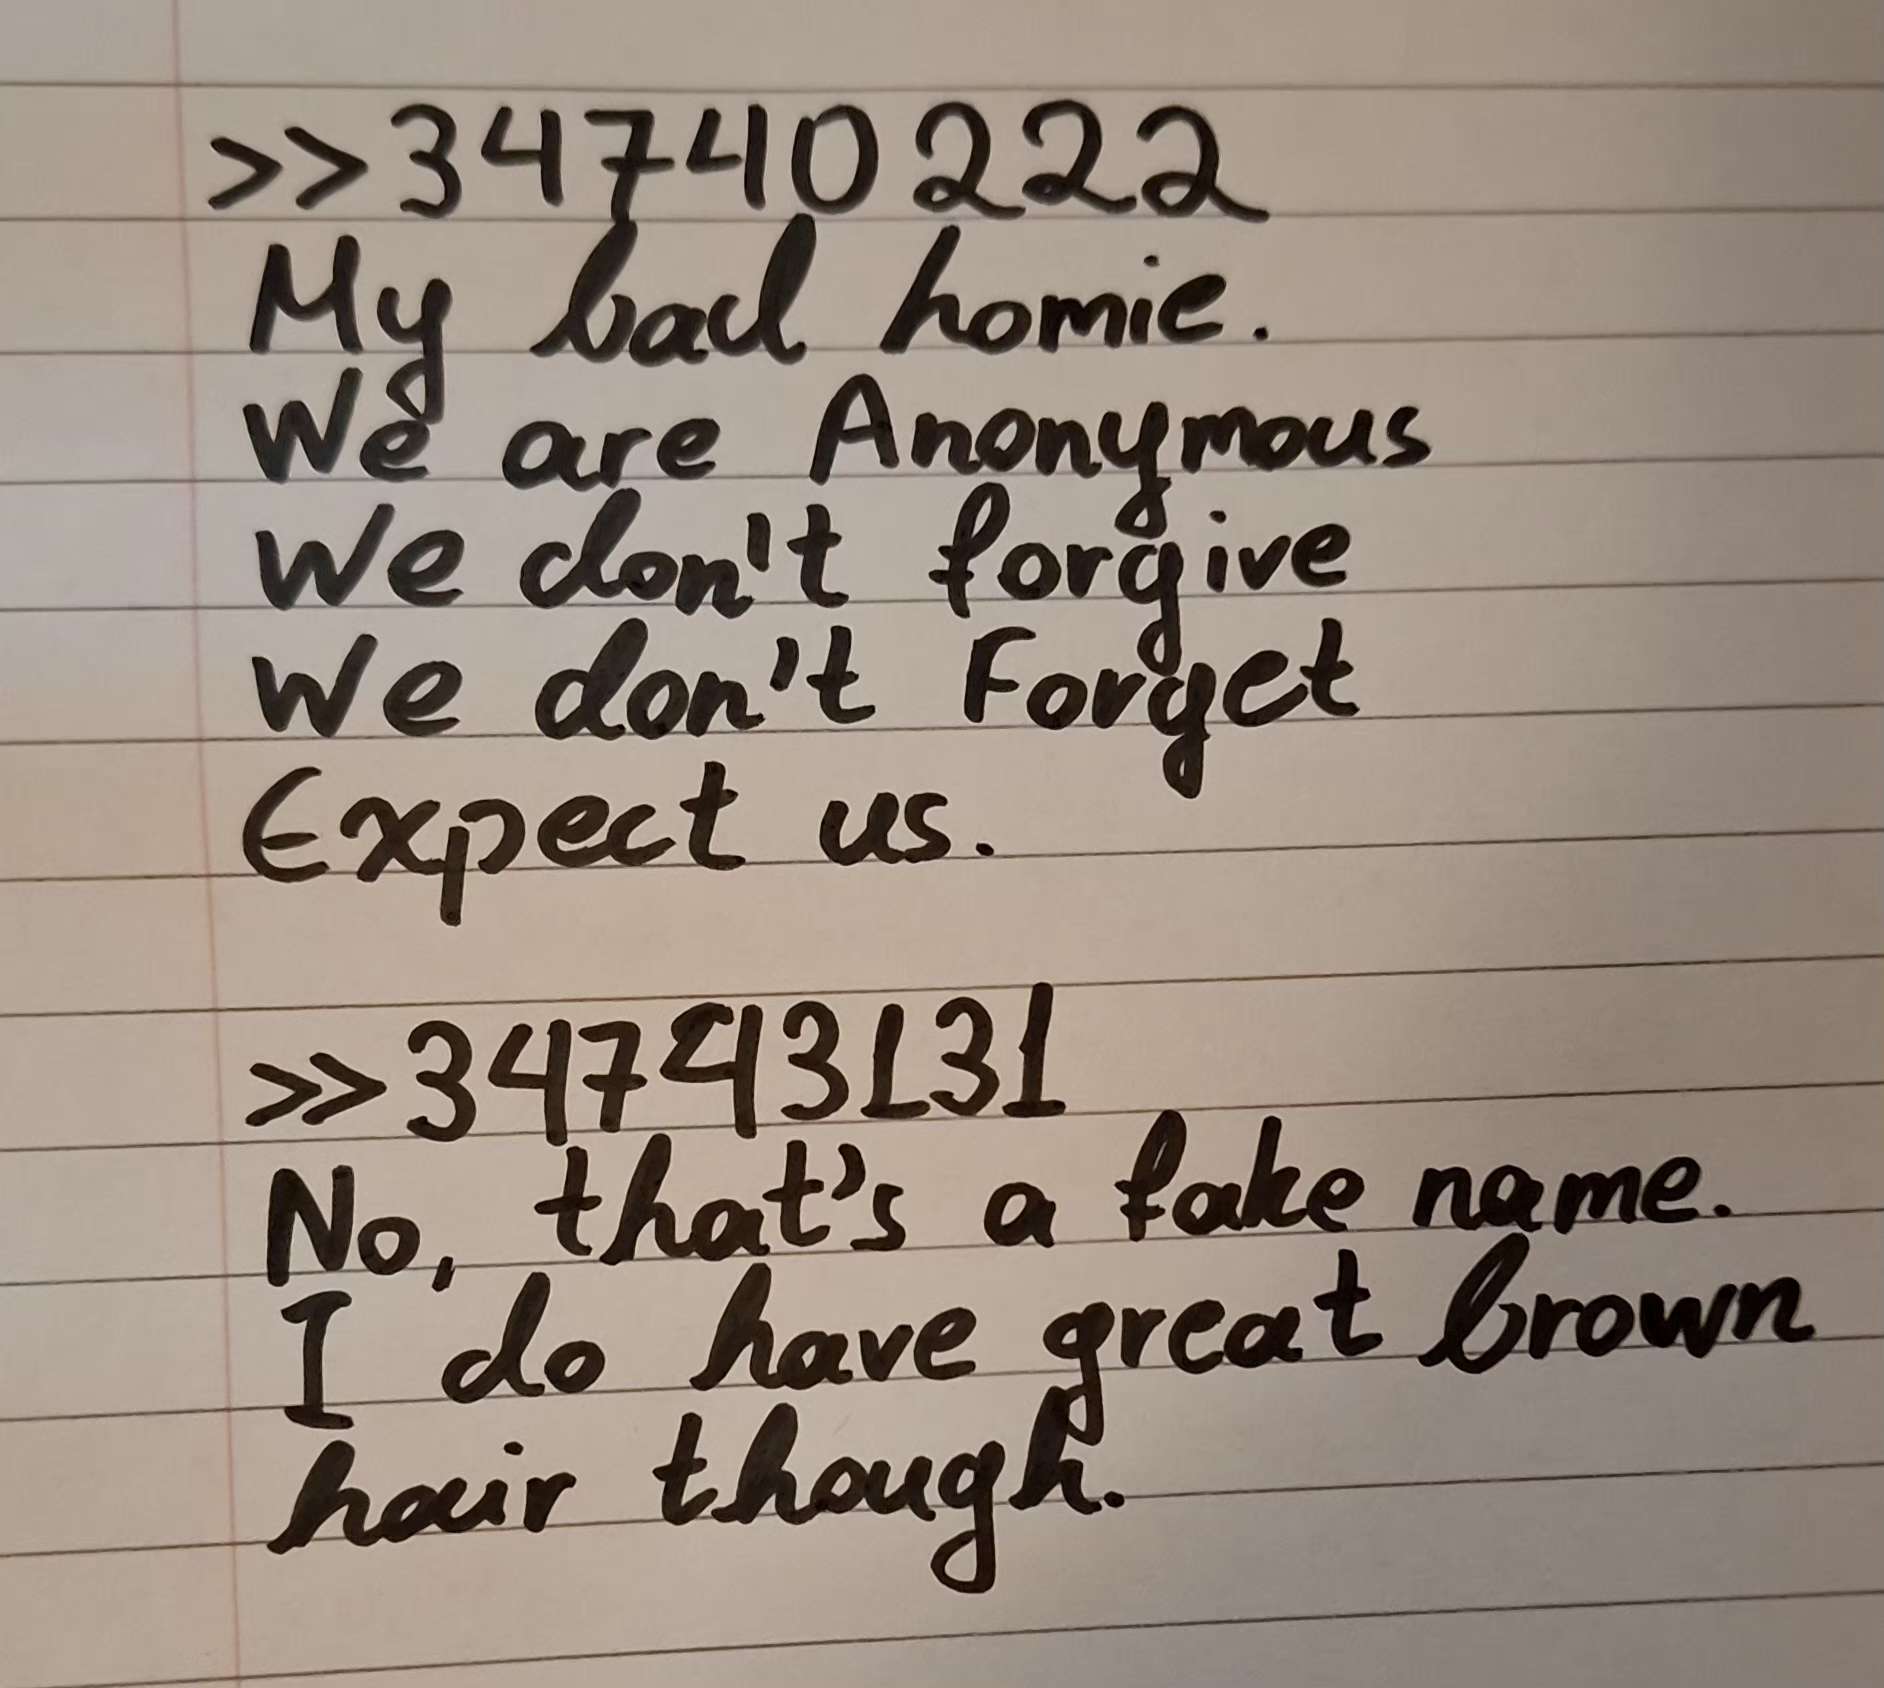 >>34740222
My bad homie.
We are Anonymous
We don't forgive
We don't Forget
Expect us.
>>34743131
No, that's a fake name.
I do have great brown
hair though.